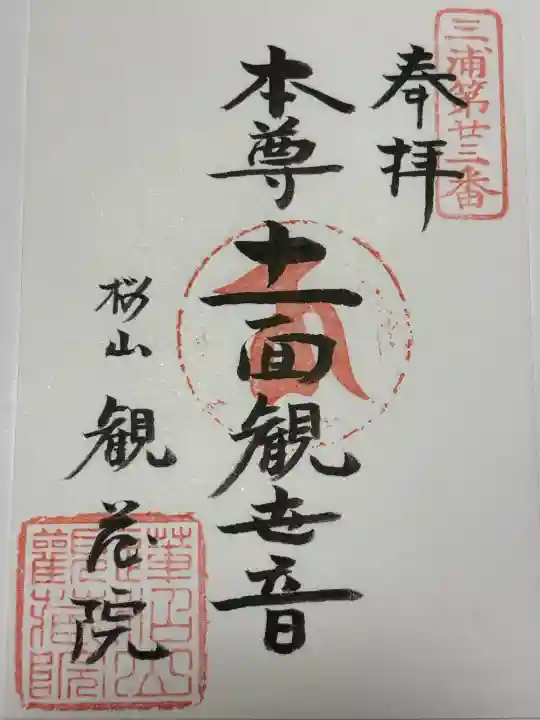 三浦第廿三番
奉拝
本尊十一面観世音
桜山 観蔵院